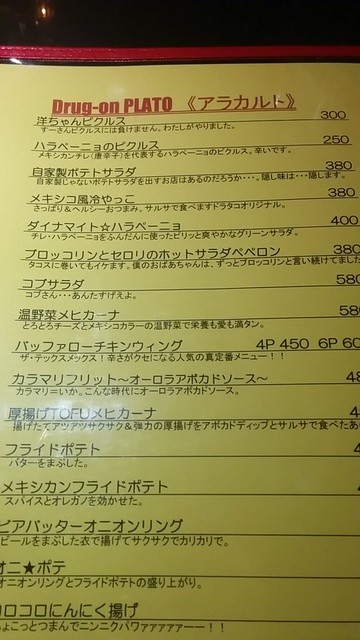 Drug-on PLATO 《アラカルト》
洋ちゃんピクルス 300
すーさんピクルスには負けません。わたしがやりました。
ハラペーニョのピクルス 250
メキシカンチレ(唐辛子)を代表するハラペーニョのピクルス。辛いです。
自家製ポテトサラダ 380
自家製じゃないポテトサラダを出すお店はあるのだろうか・・・。隠し味は・・・隠します。
メキシコ風冷やっこ 380
さっぱり&ヘルシーおつまみ。サルサで食べますドラタコオリジナル。
ダイナマイト☆ハラペーニョ 400
チレ・ハラペーニョをふんだんに使ったピリッと爽やかなグリーンサラダ。
ブロッコリンとセロリのホットサラダペペロン 380
タコスに巻いてもイケます。僕のおばあちゃんは、ずっとブロッコリンと言い続けてました
コブサラダ 580
コブさん・・・あんたすげえよ。
温野菜メヒカーナ 580
とろとろチーズとメキシコカラーの温野菜で栄養も愛も満タン。
バッファローチキンウィング 4P 450 6P 60
ザ・テックスメックス!辛さがクセになる人気の真定番メニュー!!
カラマリフリット~オーロラアボカドソース~ 48
カラマリ=いか。こんな時代にオーロラアボカドソース。
厚揚げTOFUメヒカーナ 4
揚げたてアツアツサクサク&弾力の厚揚げをアボカドディップとサルサで食べたあ
フライドポテト 4
バターをまぶした。
メキシカンフライドポテト 4
スパイスとオレガノを効かせた。
ビアバッターオニオンリング
ビールをまぶした衣で揚げてサクサクでカリカリで。
オニ★ポテ
オニオンリングとフライドポテトの盛り上がり。
コロコロにんにく揚げ
ちょこっとつまんでニンニクパワァァァァァーー!!